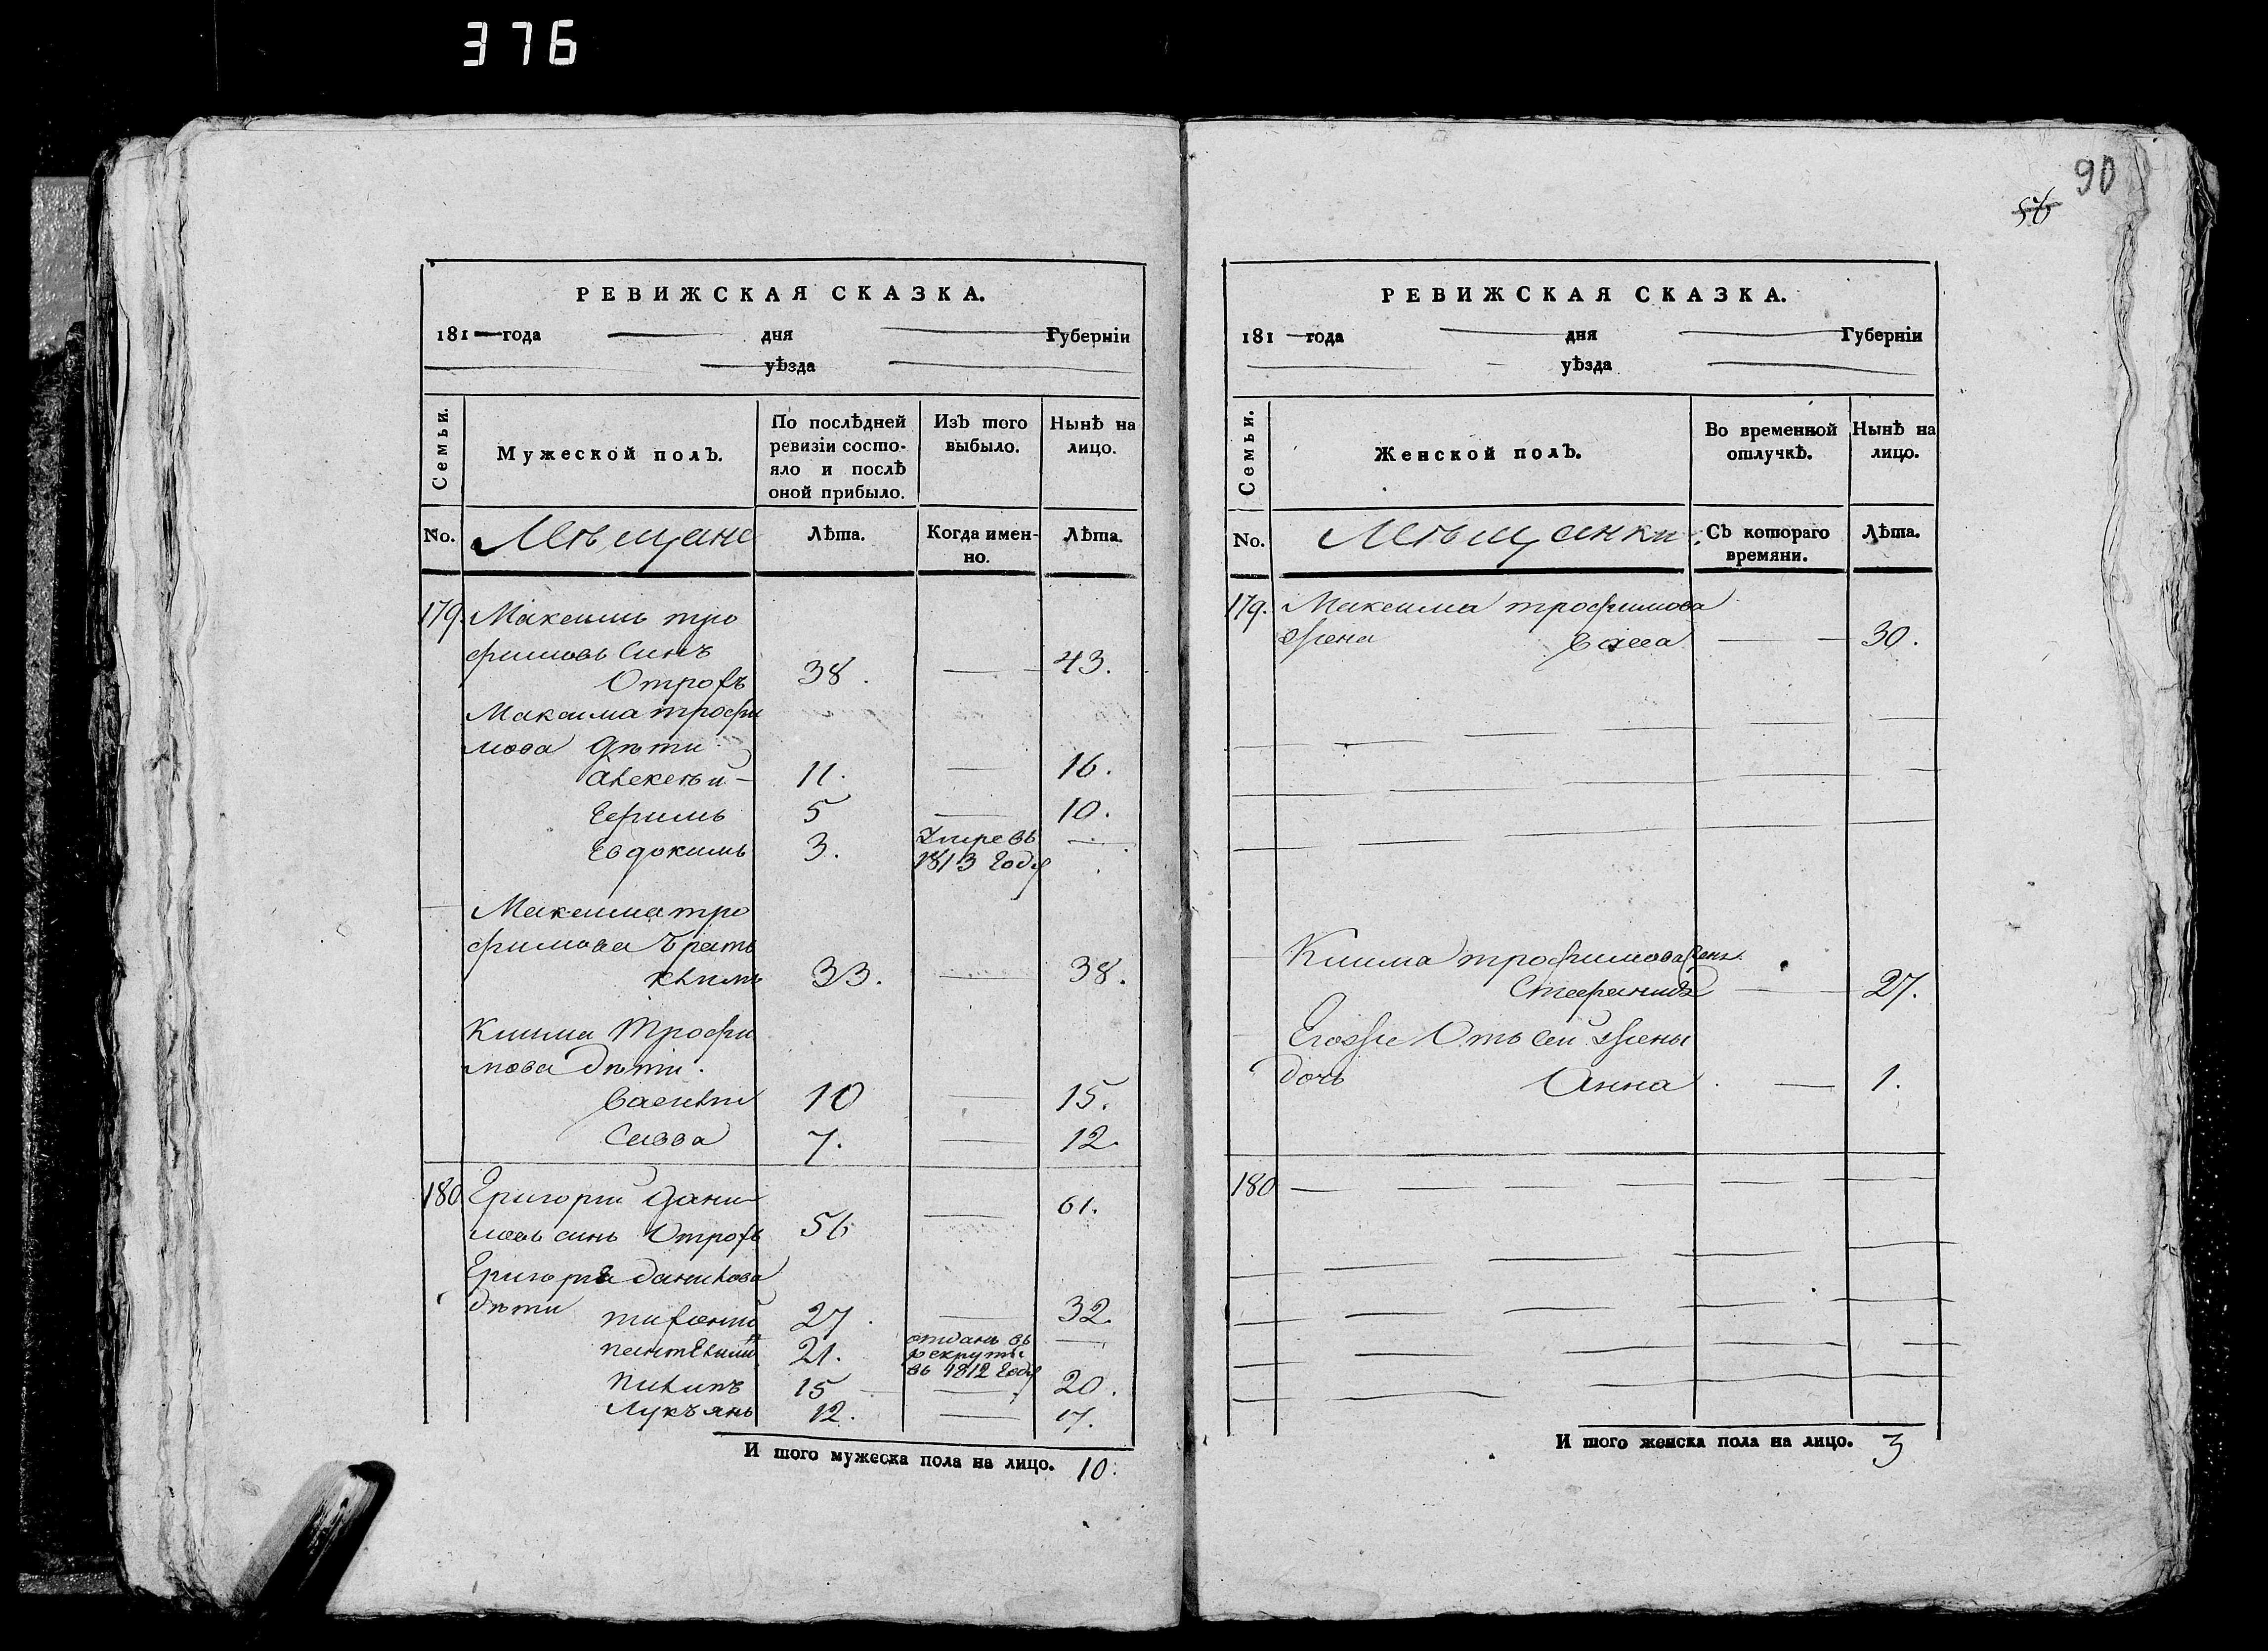 376
90
56
РЕВИЖСКАЯ СКАЗКА.
181 года дня Губернїи
уѣзда
Семьи.
Мужеской полЪ.
По послѣдней ревизїи состояло и послѣ оной прибыло.
ИзЪ того выбыло.
Нынѣ на лицо.
No.
Мѣщане
Лѣта.
Когда именно.
Лѣта.
179. Максимъ тро
фимовъ Синъ
Отрохъ 38. 43.
Максима трофи
мова дѣти
Алексѣй 11. 16.
Ефимъ 5 10.
Евдокимъ 3. Умре въ
1813 году
Максима тро
фимова братъ
Климъ 33. 38.
Клима Трофи
мова дѣти.
Василий 10 15.
Савва 7. 12.
180 Григорий Дани
ловъ синъ Отрохъ 56 61.
Григория Данилова
дѣти 27. 32.
21. отданъ въ
рекруты
въ 1812 году
Пилипъ 15 20.
Лукъянъ 12. 17.
И того мужеска пола на лицо. 10.
РЕВИЖСКАЯ СКАЗКА.
181 года дня Губернїи
уѣзда
Семьи.
Женской полЪ.
Во временной отлучкѣ.
Нынѣ на лицо.
No.
Мѣщанки
СЪ котораго времяни.
Лѣта.
179. Максима трофимова
жена Васса 30.
Клима трофимова жена
Стефанида 27.
Егоже Отъ сей жены
дочь Анна 1.
180
И того женска пола на лицо. 3